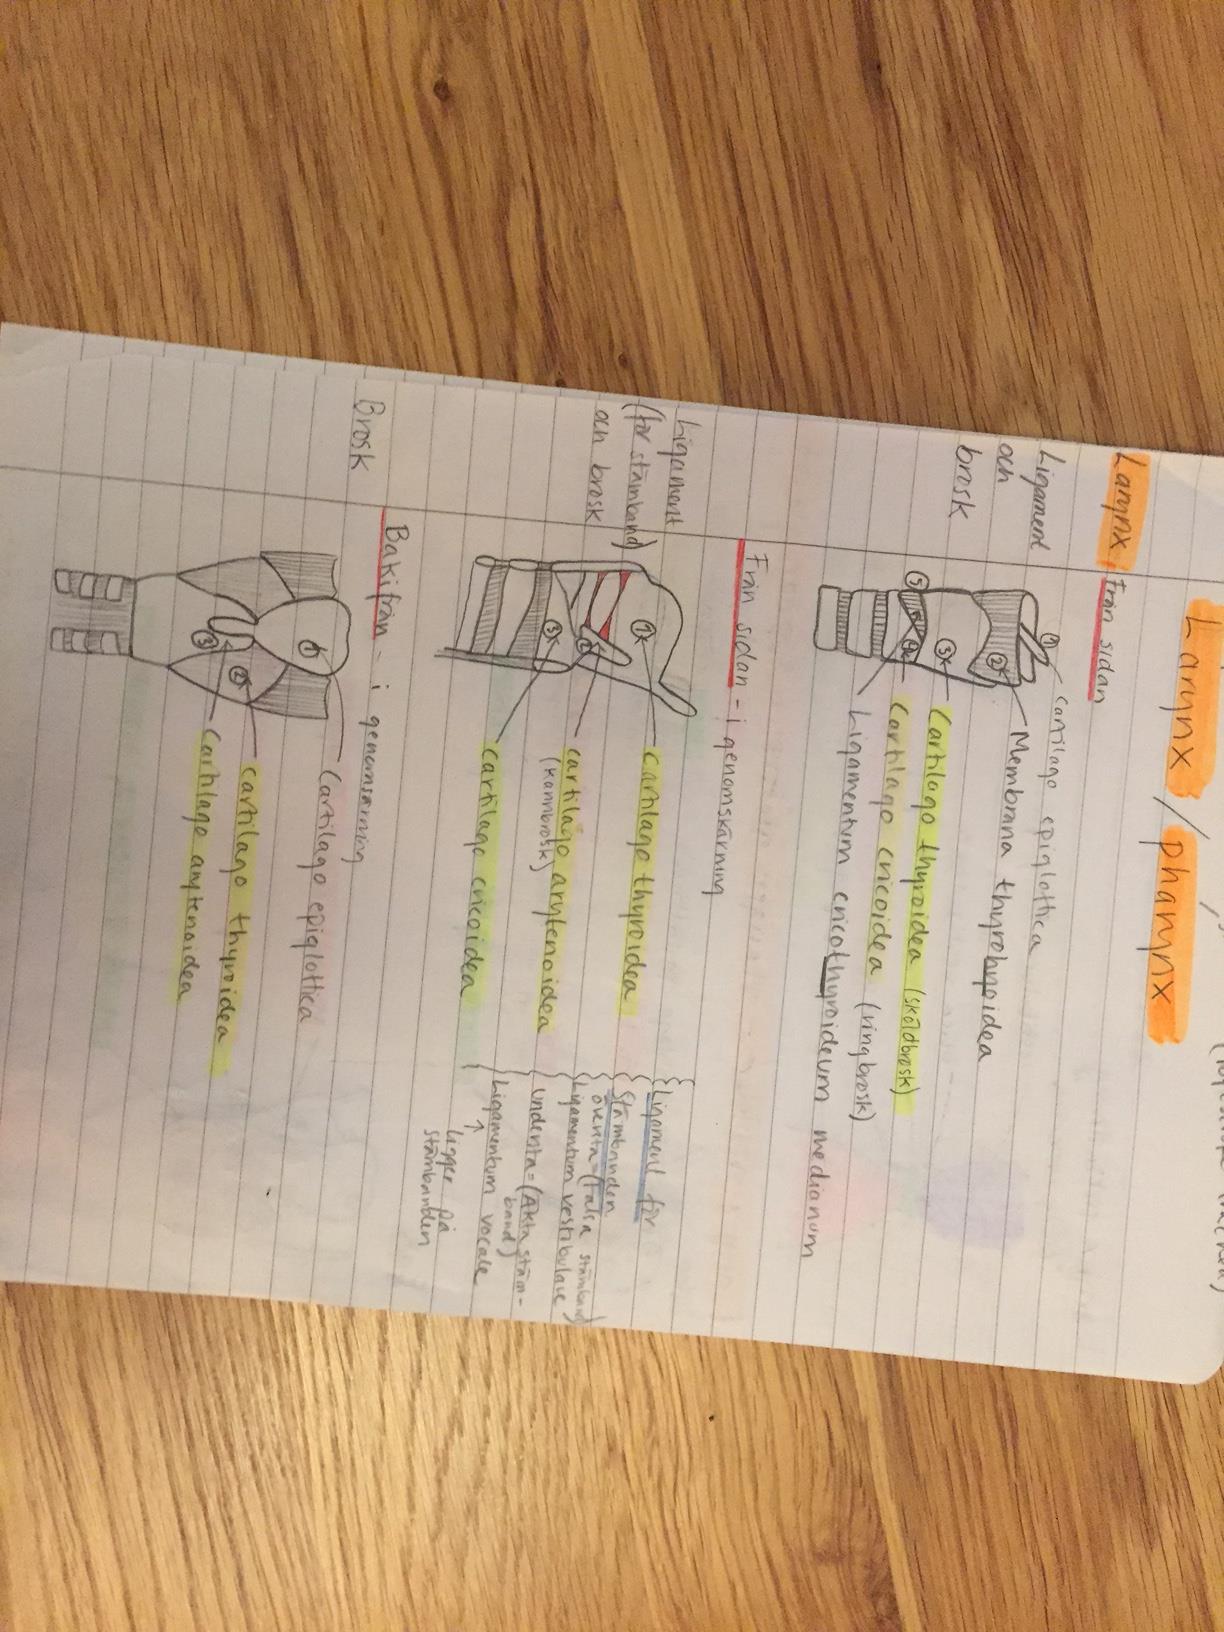 Larynx / pharynx
Larynx
Ligament
och
brosk
Från sidan
① cartilago epiglottica
② Membrana thyrohyoidea
③ Cartilago thyroidea (sköldbrosk)
④ Cartilago cricoidea (ringbrosk)
⑤ Ligamentum cricothyroideum medianum
Ligament
(för stämband)
och brosk
Från sidan - i genomskärning
① cartilago thyroidea
② cartilago arytenoidea
(kannbrosk)
③ cartilago cricoidea
Ligament för
Stämbanden
översta = (Falska stämband)
Ligamentum vestibulare
understa = (Äkta stäm-
band)
Ligamentum vocale
↑
Ligger på
stämbanden
Brosk
Bakifrån - i
① Cartilago epiglottica
② cartilago thyroidea
③ Cartilago